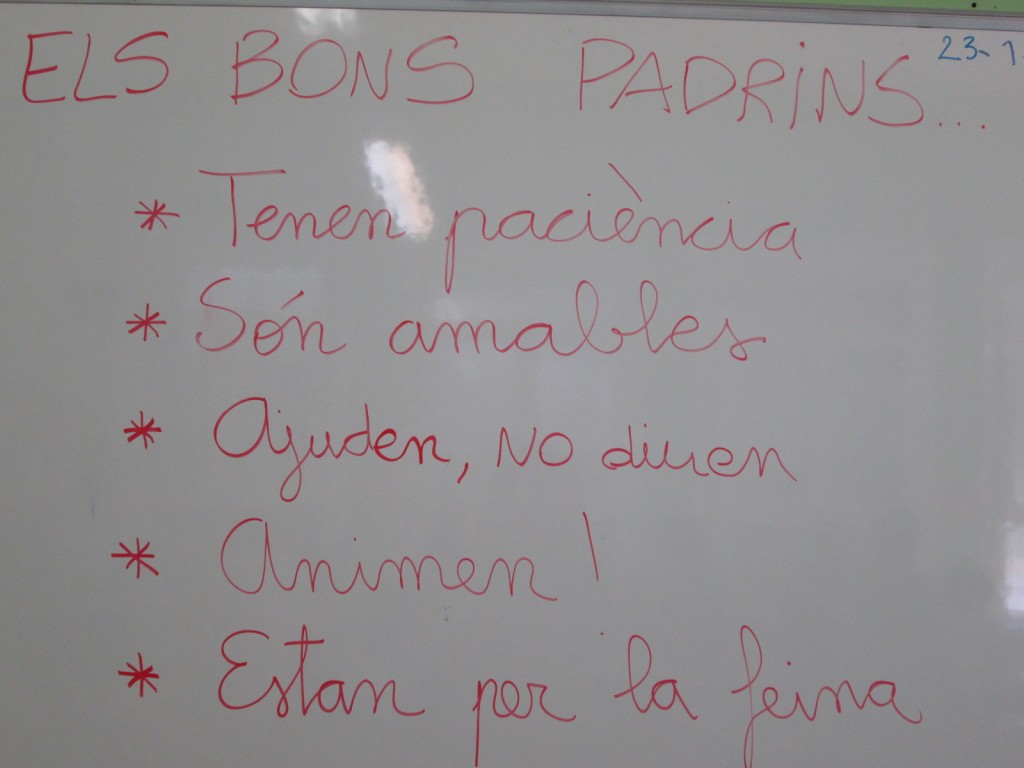 ELS BONS PADRINS... 23-1
* Tenen paciència
* Són amables
* Ajuden, NO diuen
* Animen!
* Estan per la feina